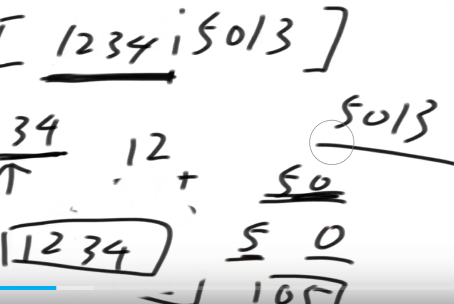 [ 1234 ; 5013 ]
34 12 + 50 5013
1234 5 0
105